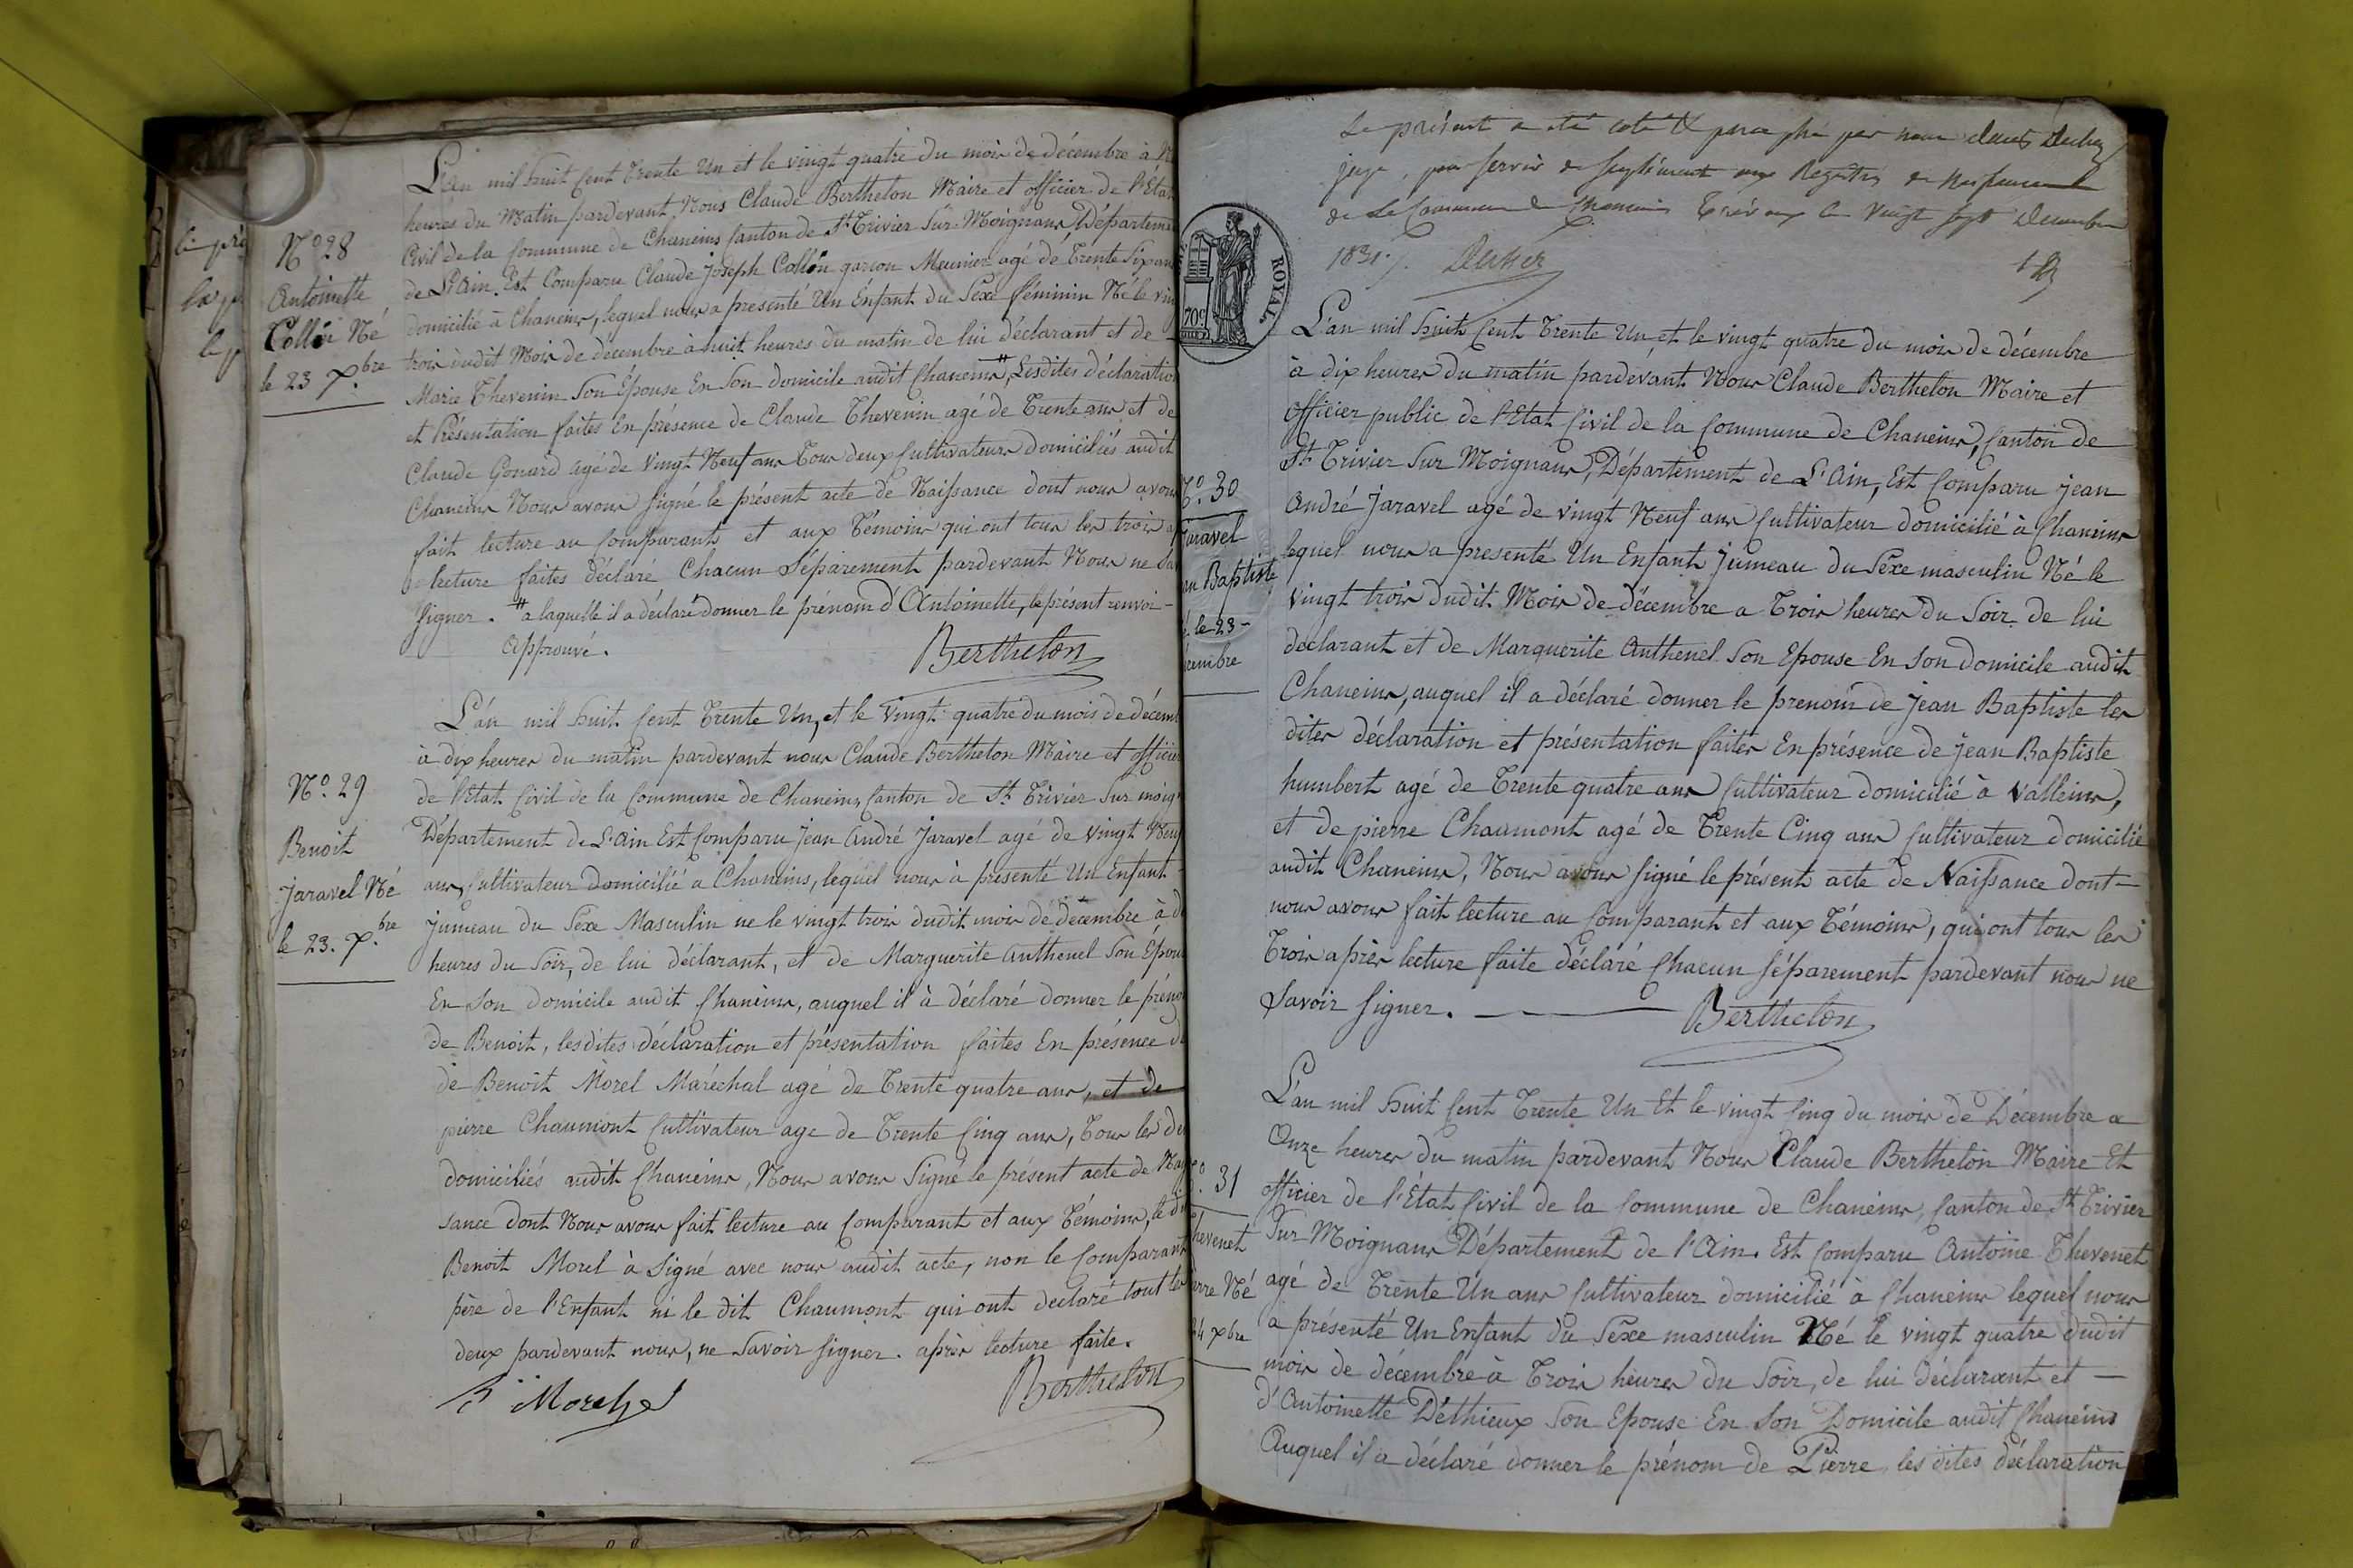 le pré
N.º 28
Antoinette
Collin Né
le 23 Xbre
L'an mil huit Cent Trente Un et le vingt quatre du mois de décembre à
heures du Matin pardevant Nous Claude Berthelon Maire et officier de l'Etat
Civil de la Commune de Chaneins Canton de St. Trivier Sur Moignans Départeme
de L'Ain. Est Comparu Claude joseph Collin garçon Meunier agé de Trente Six ans
domicilié à Chaneins, lequel nous a presenté Un Enfant du Sexe féminin Né le vin
trois dudit Mois de decembre à huit heures du matin de lui déclarant et de
Marie Thevenin Son Épouse En Son domicile audit Chaneins, # Lesdites déclaration
et Présentation faites En présence de Claude Thevenin agé de Trente ans et de
Claude Gonard agé de Vingt Neuf ans Tous deux Cultivateurs domiciliés audit
Chaneins Nous avons signé le présent acte de Naissance dont nous avons
fait lecture au Comparant et aux Témoins qui ont tous les trois a
lecture faites déclaré Chacun Séparement pardevant Nous ne Sa
Signer. # a laquelle il a déclaré donner le prénom d'Antoinette, le présent renvoi
Approuvé.
Berthelon
N.º 29
Benoit
Jaravel Né
le 23. Xbre
L'an mil huit Cent Trente Un, et le Vingt quatre du mois de décemb
à dix heures du matin pardevant nous Claude Berthelon Maire et officier
de l'Etat Civil de la Commune de Chaneins Canton de St Trivier Sur moign
Département de L'Ain Est Comparu jean andré Jaravel agé de vingt Neuf
ans, Cultivateur Domicilié a Chaneins, lequel nous à presenté Un Enfant
jumeau du Sexe Masculin ne le vingt trois dudit mois de decembre à d
heures du Soir, de lui déclarant, et de Marguerite Anthenel Son Épou
En Son domicile audit Chaneins, auquel il à déclaré donner le préno
de Benoit, lesdites déclaration et présentation faites En présence d
de Benoit Morel Maréchal agé de Trente quatre ans, et de
pierre Chaumont Cultivateur age de Trente Cinq ans, Tous les de
domiciliés audit Chaneins, Nous avons Signé le présent acte de Nais
sance dont Nous avons fait lecture au Comparant et aux Témoins, le di
Benoit Morel à Signé avec nous audit acte, non le Comparant
père de l'Enfant ni le dit Chaumont qui ont declaré tout les
deux pardevant nous, ne Savoir signer. après lecture faite.
B Morel
Berthelon
Le présent a été coté & paraphé par nous
juge, pour servir de supplément aux Registres de Naissance
de la Commune de Chaneins Trévoux le Vingt Sept Decembre
1831.
ROYAL
70c
L'an mil huit Cent Trente Un, et le vingt quatre du mois de décembre
à dix heures du matin pardevant Nous Claude Berthelon Maire et
Officier public de l'Etat Civil de la Commune de Chaneins, Canton de
St. Trivier Sur Moignans, Département de L'Ain, Est Comparu jean
André Jaravel agé de vingt Neuf ans Cultivateur domicilié à Chaneins
lequel nous a presenté Un Enfant jumeau du Sexe masculin Né le
vingt trois dudit Mois de décembre a Trois heures du Soir de lui
déclarant et de Marguerite Anthenel Son Epouse En Son domicile audit
Chaneins, auquel il a déclaré donner le prenom de jean Baptiste les
dites déclaration et présentation faites En présence de jean Baptiste
humbert agé de Trente quatre ans Cultivateur domicilié à Valleins,
et de pierre Chaumont agé de Trente Cinq ans Cultivateur domicilié
audit Chaneins, Nous avons signé le présent acte de Naissance dont
nous avons fait lecture au Comparant et aux Témoins, qui ont tous les
Trois après lecture faite déclaré Chacun séparement pardevant nous ne
Savoir signer.
Berthelon
º. 30
Jaravel
an Baptiste
é le 23
cembre
L'an mil huit Cent Trente Un Et le vingt Cinq du mois de Décembre a
Onze heures du matin pardevant Nous Claude Berthelon Maire Et
officier de l'État Civil de la Commune de Chaneins, Canton de St Trivier
Sur Moignans Département de l'Ain. Est Comparu Antoine Thevenet
agé de Trente Un ans Cultivateur domicilié à Chaneins lequel nous
a présenté Un Enfant du Sexe masculin Né le vingt quatre dudit
mois de décembre à Trois heures du Soir, de lui déclarant et
d'Antoinette Déthieux Son Epouse En Son Domicile audit Chaneins
Auquel il a déclaré donner le prénom de Pierre les dites déclaration
º. 31
hevenet
erre Né
24 xbre